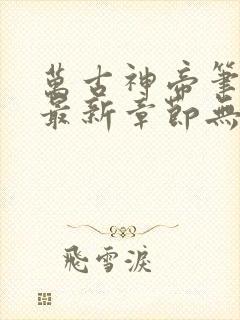 萬古神帝筆
最新章節無
飛雪淚